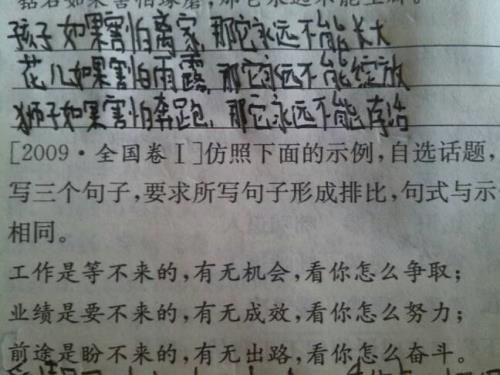 磊石如果害怕琢磨,那它永远不能
孩子如果害怕离家,那它永远不能长大
花儿如果害怕雨露,那它永远不能绽放
狮子如果害怕奔跑,那它永远不能存活
[2009·全国卷Ⅰ]仿照下面的示例,自选话题,
写三个句子,要求所写句子形成排比,句式与示
相同。
工作是等不来的,有无机会,看你怎么争取;
业绩是要不来的,有无成效,看你怎么努力;
前途是盼不来的,有无出路,看你怎么奋斗。